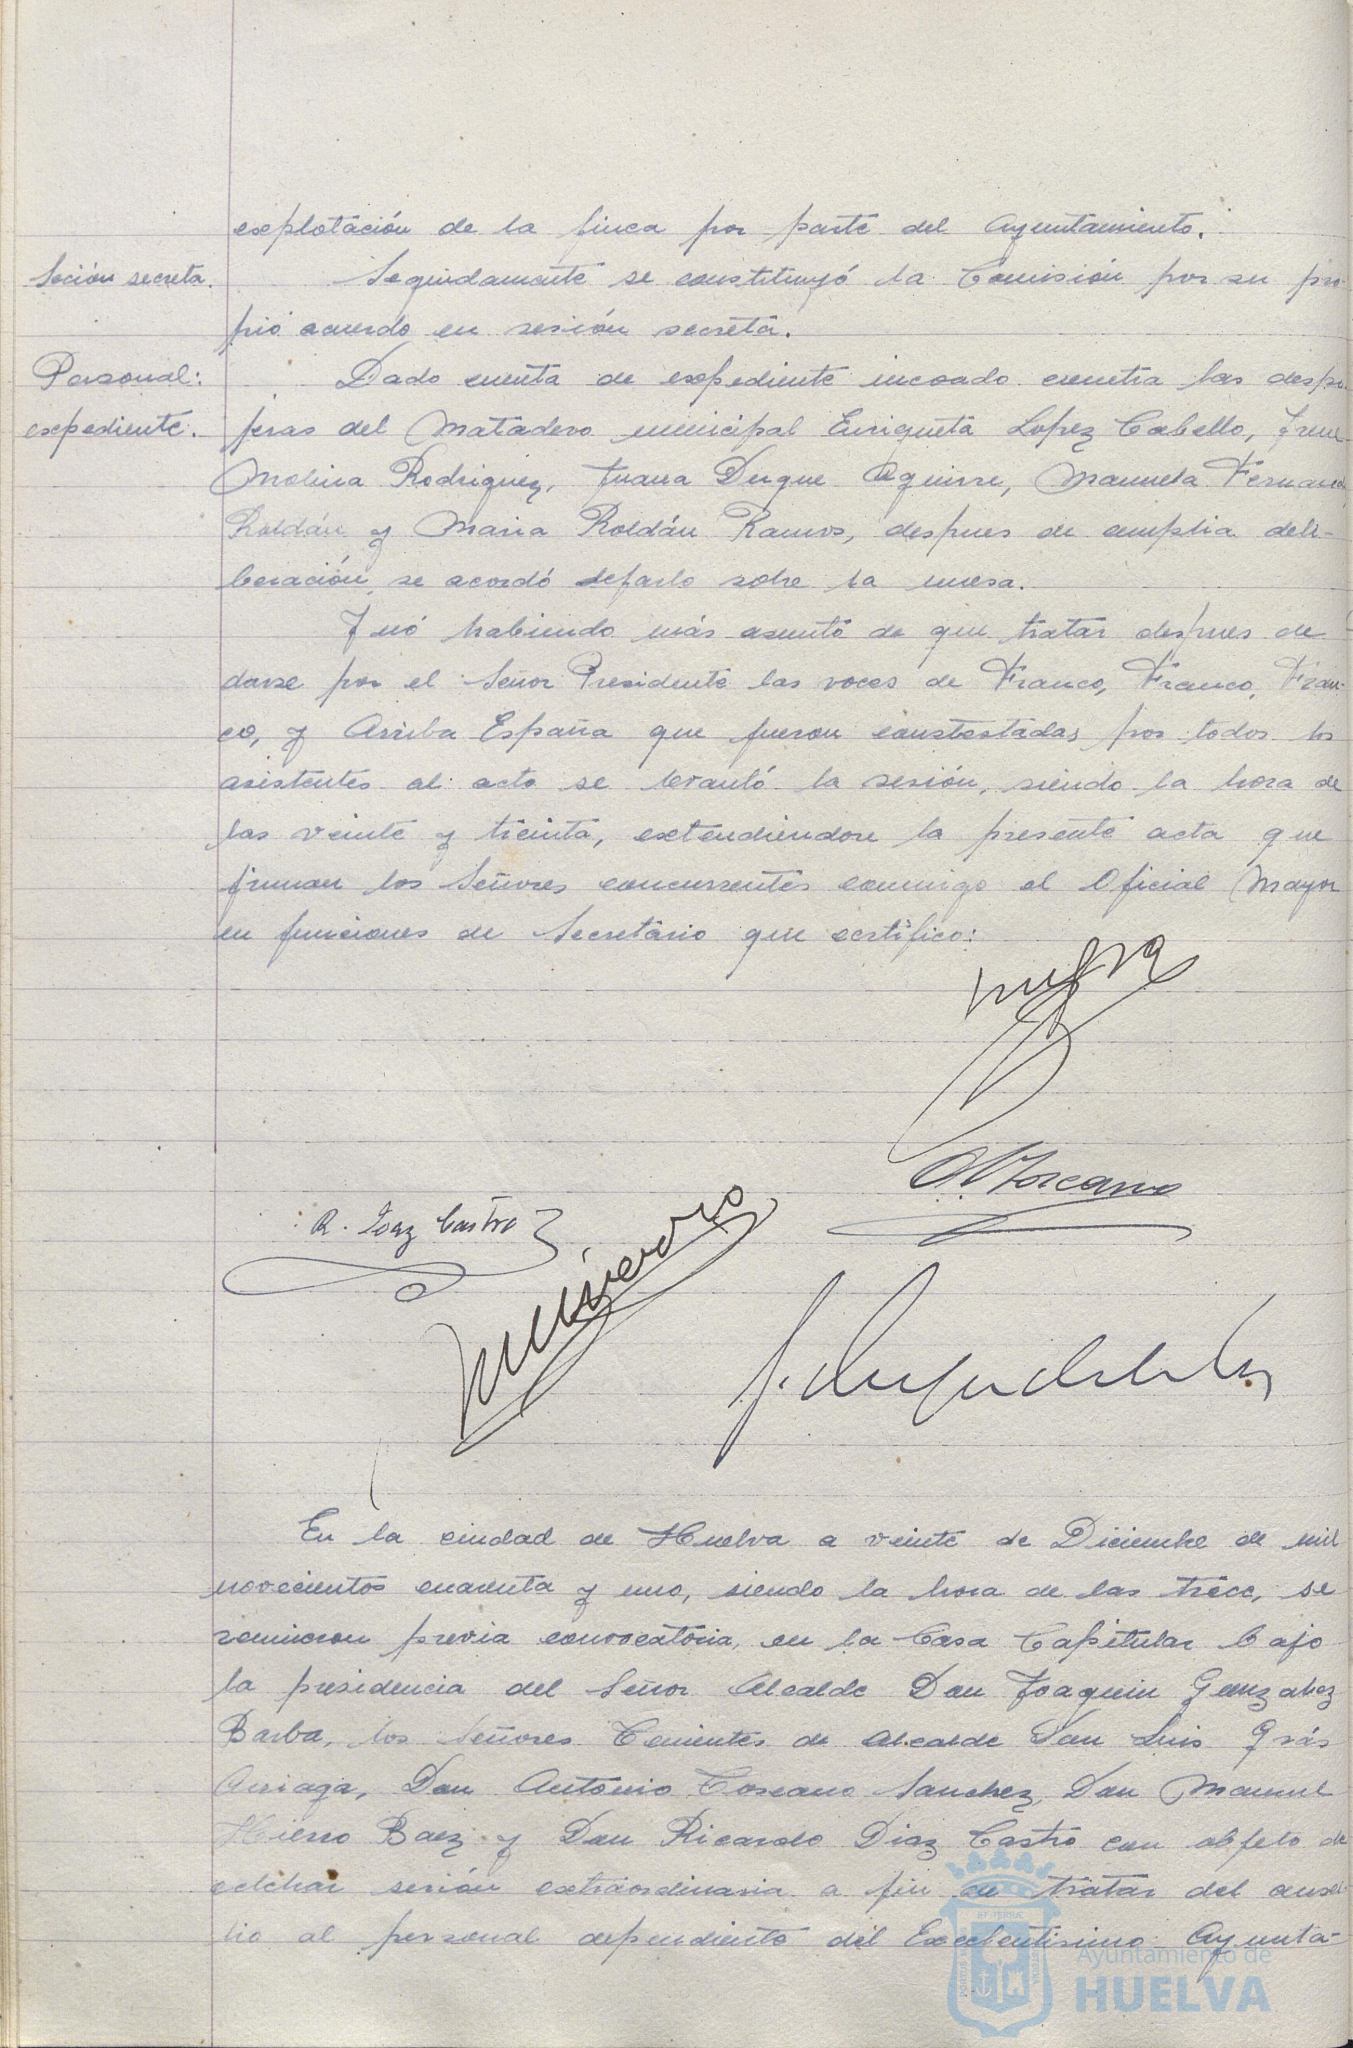 explotación de la finca por parte del Ayuntamiento.
Seción secreta.
Seguidamente se constituyó la Comisión por su pro-
pio acuerdo en sesión secreta.
Personal:
expediente.
Dado cuenta de expediente incoado contra las despo-
jeras del Matadero municipal Enriqueta Lopez Cabello,
Molina Rodriguez, Juana Duque Aguirre, Manuela Fernand
Roldán y Maria Roldán Ramos, despues de amplia deli-
beración, se acordó dejarlo sobre la mesa.
Y nó habiendo más asunto de que tratar despues de
darse por el Señor Presidente las voces de Franco, Franco, Fran-
co, y Arriba España que fueron constestadas por todos los
asistentes al acto se levantó la sesión, siendo la hora de
las veinte y treinta, extendiendose la presente acta que
firman los Señores concurrentes conmigo el Oficial Mayor
en funciones de Secretario que certifico:
A Toscano
R. Diaz Castro
En la ciudad de Huelva a veinte de Diciembre de mil
novecientos cuarenta y uno, siendo la hora de las trece, se
reunieron previa convocatoria, en la Casa Capitular bajo
la presidencia del Señor Alcalde Don Joaquin Gonzalez
Barba, los Señores Tenientes de Alcalde Don Luis Grás
Arriaga, Don Antonio Toscano Sanchez, Don Manuel
Hierro Baez y Don Ricardo Diaz Castro con objeto de
celebrar sesión extraordinaria a fin de tratar del auxi-
lio al personal dependiente del Excelentisimo Ayunta-
Ayuntamiento de
HUELVA